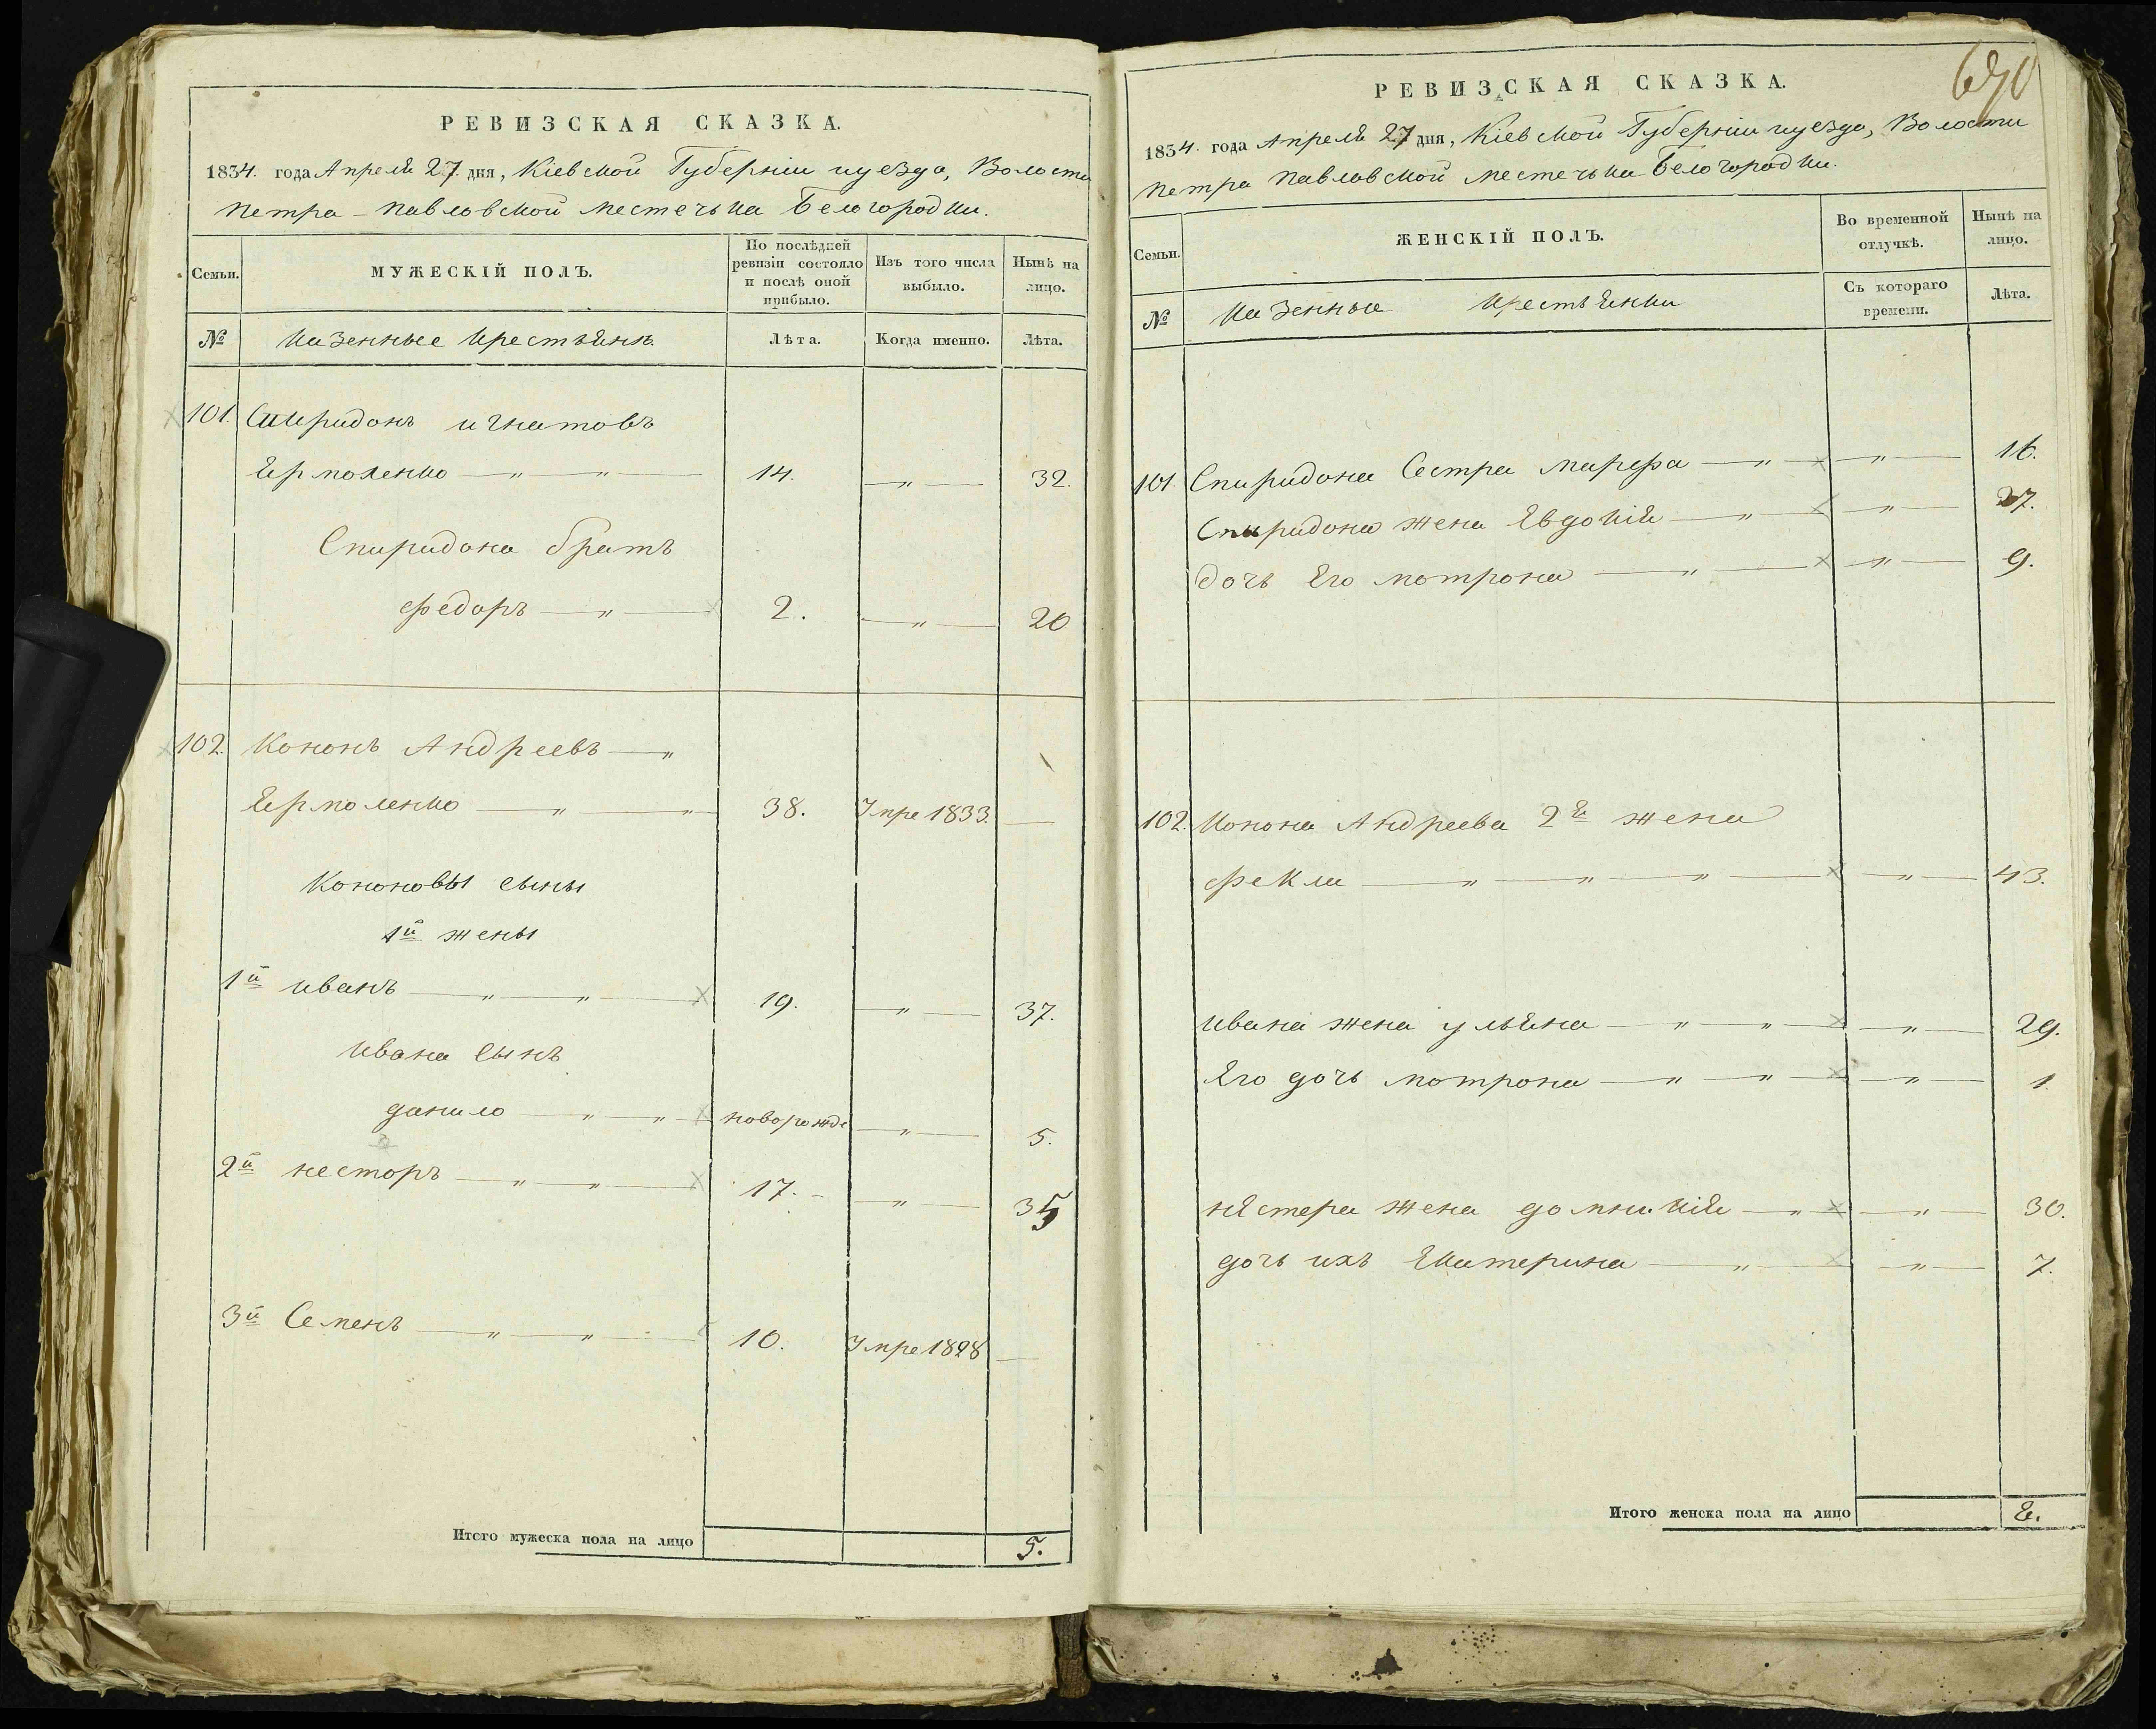 РЕВИЗСКАЯ СКАЗКА.
1834. года Апреля 27 дня, Кіевской Губерніи иуезда, Волости
Петра-Павловской местечька Белогородки.
Семьи.
МУЖЕСКІЙ ПОЛЪ.
По послѣдней ревизіи состояло и послѣ оной прибыло.
Изъ того числа выбыло.
Нынѣ на лицо.
№
Казенные Крестьяне
Лѣта.
Когда именно.
Лѣта.
101. Спиридонъ игнатовъ
Ермоленко — „ — „ — 14. — „ — 32.
Спиридона братъ
федоръ — „ — 2. — „ — 20
102. Кононъ Андреевъ — „
Ермоленко — „ — „ — 38. Умре 1833. —
Кононовы сыны
1й жены
1й иванъ — „ — „ — 19. — „ — 37.
ивана сынъ
данило — „ — „ — новорожде — „ — 5.
2й несторъ — „ — „ — 17. — „ — 35
3й Семенъ — „ — „ — 10. Умре 1828 —
Итого мужеска пола на лицо 5.
690
РЕВИЗСКАЯ СКАЗКА.
1834. года Апреля 27 дня, Кіевской Губерніи иуезда, Волости
Петра Павловской местечька Белогородки.
Семьи.
ЖЕНСКІЙ ПОЛЪ.
Во временной отлучкѣ.
Нынѣ на лицо.
№
Казенные Крестьянки
Съ котораго времени.
Лѣта.
101. Спиридона Сестра марефа — „ — „ — 16.
Спиридона жена Евдокія — „ — „ — 27.
дочь Его мотрона — „ — „ — 9.
102. Конона Андреева 2я жена
фекла — „ — „ — „ — „ — 43.
ивана жена ульяна — „ — „ — „ — 29.
Его дочь мотрона — „ — „ — „ — 1
нестера жена домникія — „ — „ — 30.
дочь ихъ Екатерина — „ — „ — 7.
Итого женска пола на лицо 8.